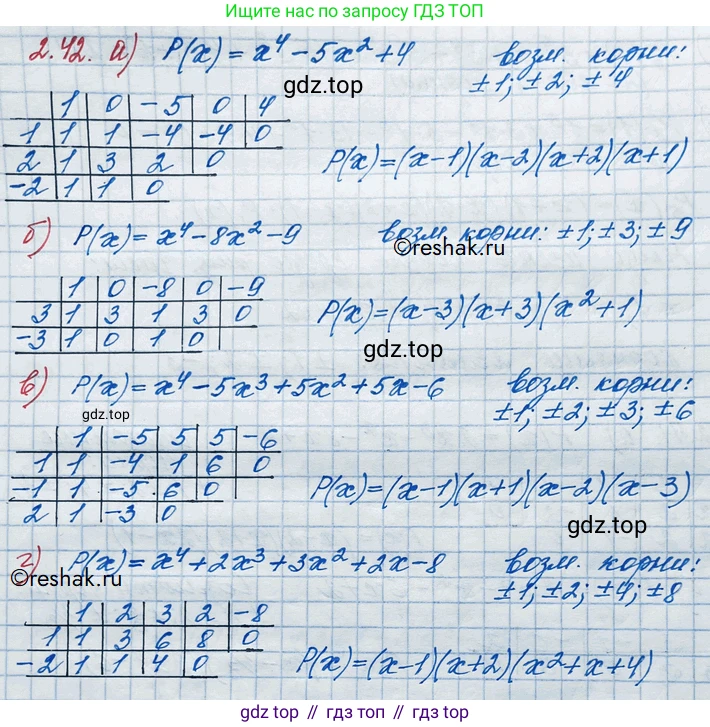 Ищите нас по запросу ГДЗ ТОП
2.42. а) P(x) = x⁴ - 5x² + 4 возм. корни:
±1; ±2; ±4
gdz.top
1 0 -5 0 4
1 1 1 -4 -4 0
2 1 3 2 0
-2 1 1 0
P(x) = (x-1)(x-2)(x+2)(x+1)
б) P(x) = x⁴ - 8x² - 9 возм. корни: ±1; ±3; ±9
©reshak.ru
1 0 -8 0 -9
3 1 3 1 3 0
-3 1 0 1 0
P(x) = (x-3)(x+3)(x²+1)
gdz.top
в) P(x) = x⁴ - 5x³ + 5x² + 5x - 6 возм. корни:
±1; ±2; ±3; ±6
gdz.top
1 -5 5 5 -6
1 1 -4 1 6 0
-1 1 -5 6 0
2 1 -3 0
P(x) = (x-1)(x+1)(x-2)(x-3)
gdz.top
г) P(x) = x⁴ + 2x³ + 3x² + 2x - 8 возм. корни:
±1; ±2; ±4; ±8
©reshak.ru
1 2 3 2 -8
1 1 3 6 8 0
-2 1 1 4 0
P(x) = (x-1)(x+2)(x²+x+4)
gdz.top // гдз.топ // gdz.top